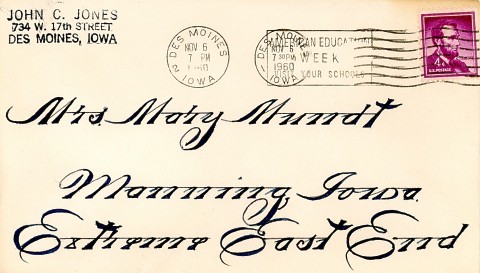 JOHN C. JONES
734 W. 17th STREET
DES MOINES, IOWA
DES MOINES
NOV 6
7 PM
1960
2 IOWA
DES MOINES
NOV 6
7 30 PM
1960
IOWA
AMERICAN EDUCATION
WEEK
VISIT YOUR SCHOOLS
U.S. POSTAGE
Mrs. Mary Mundt
Manning Iowa.
Extreme East End